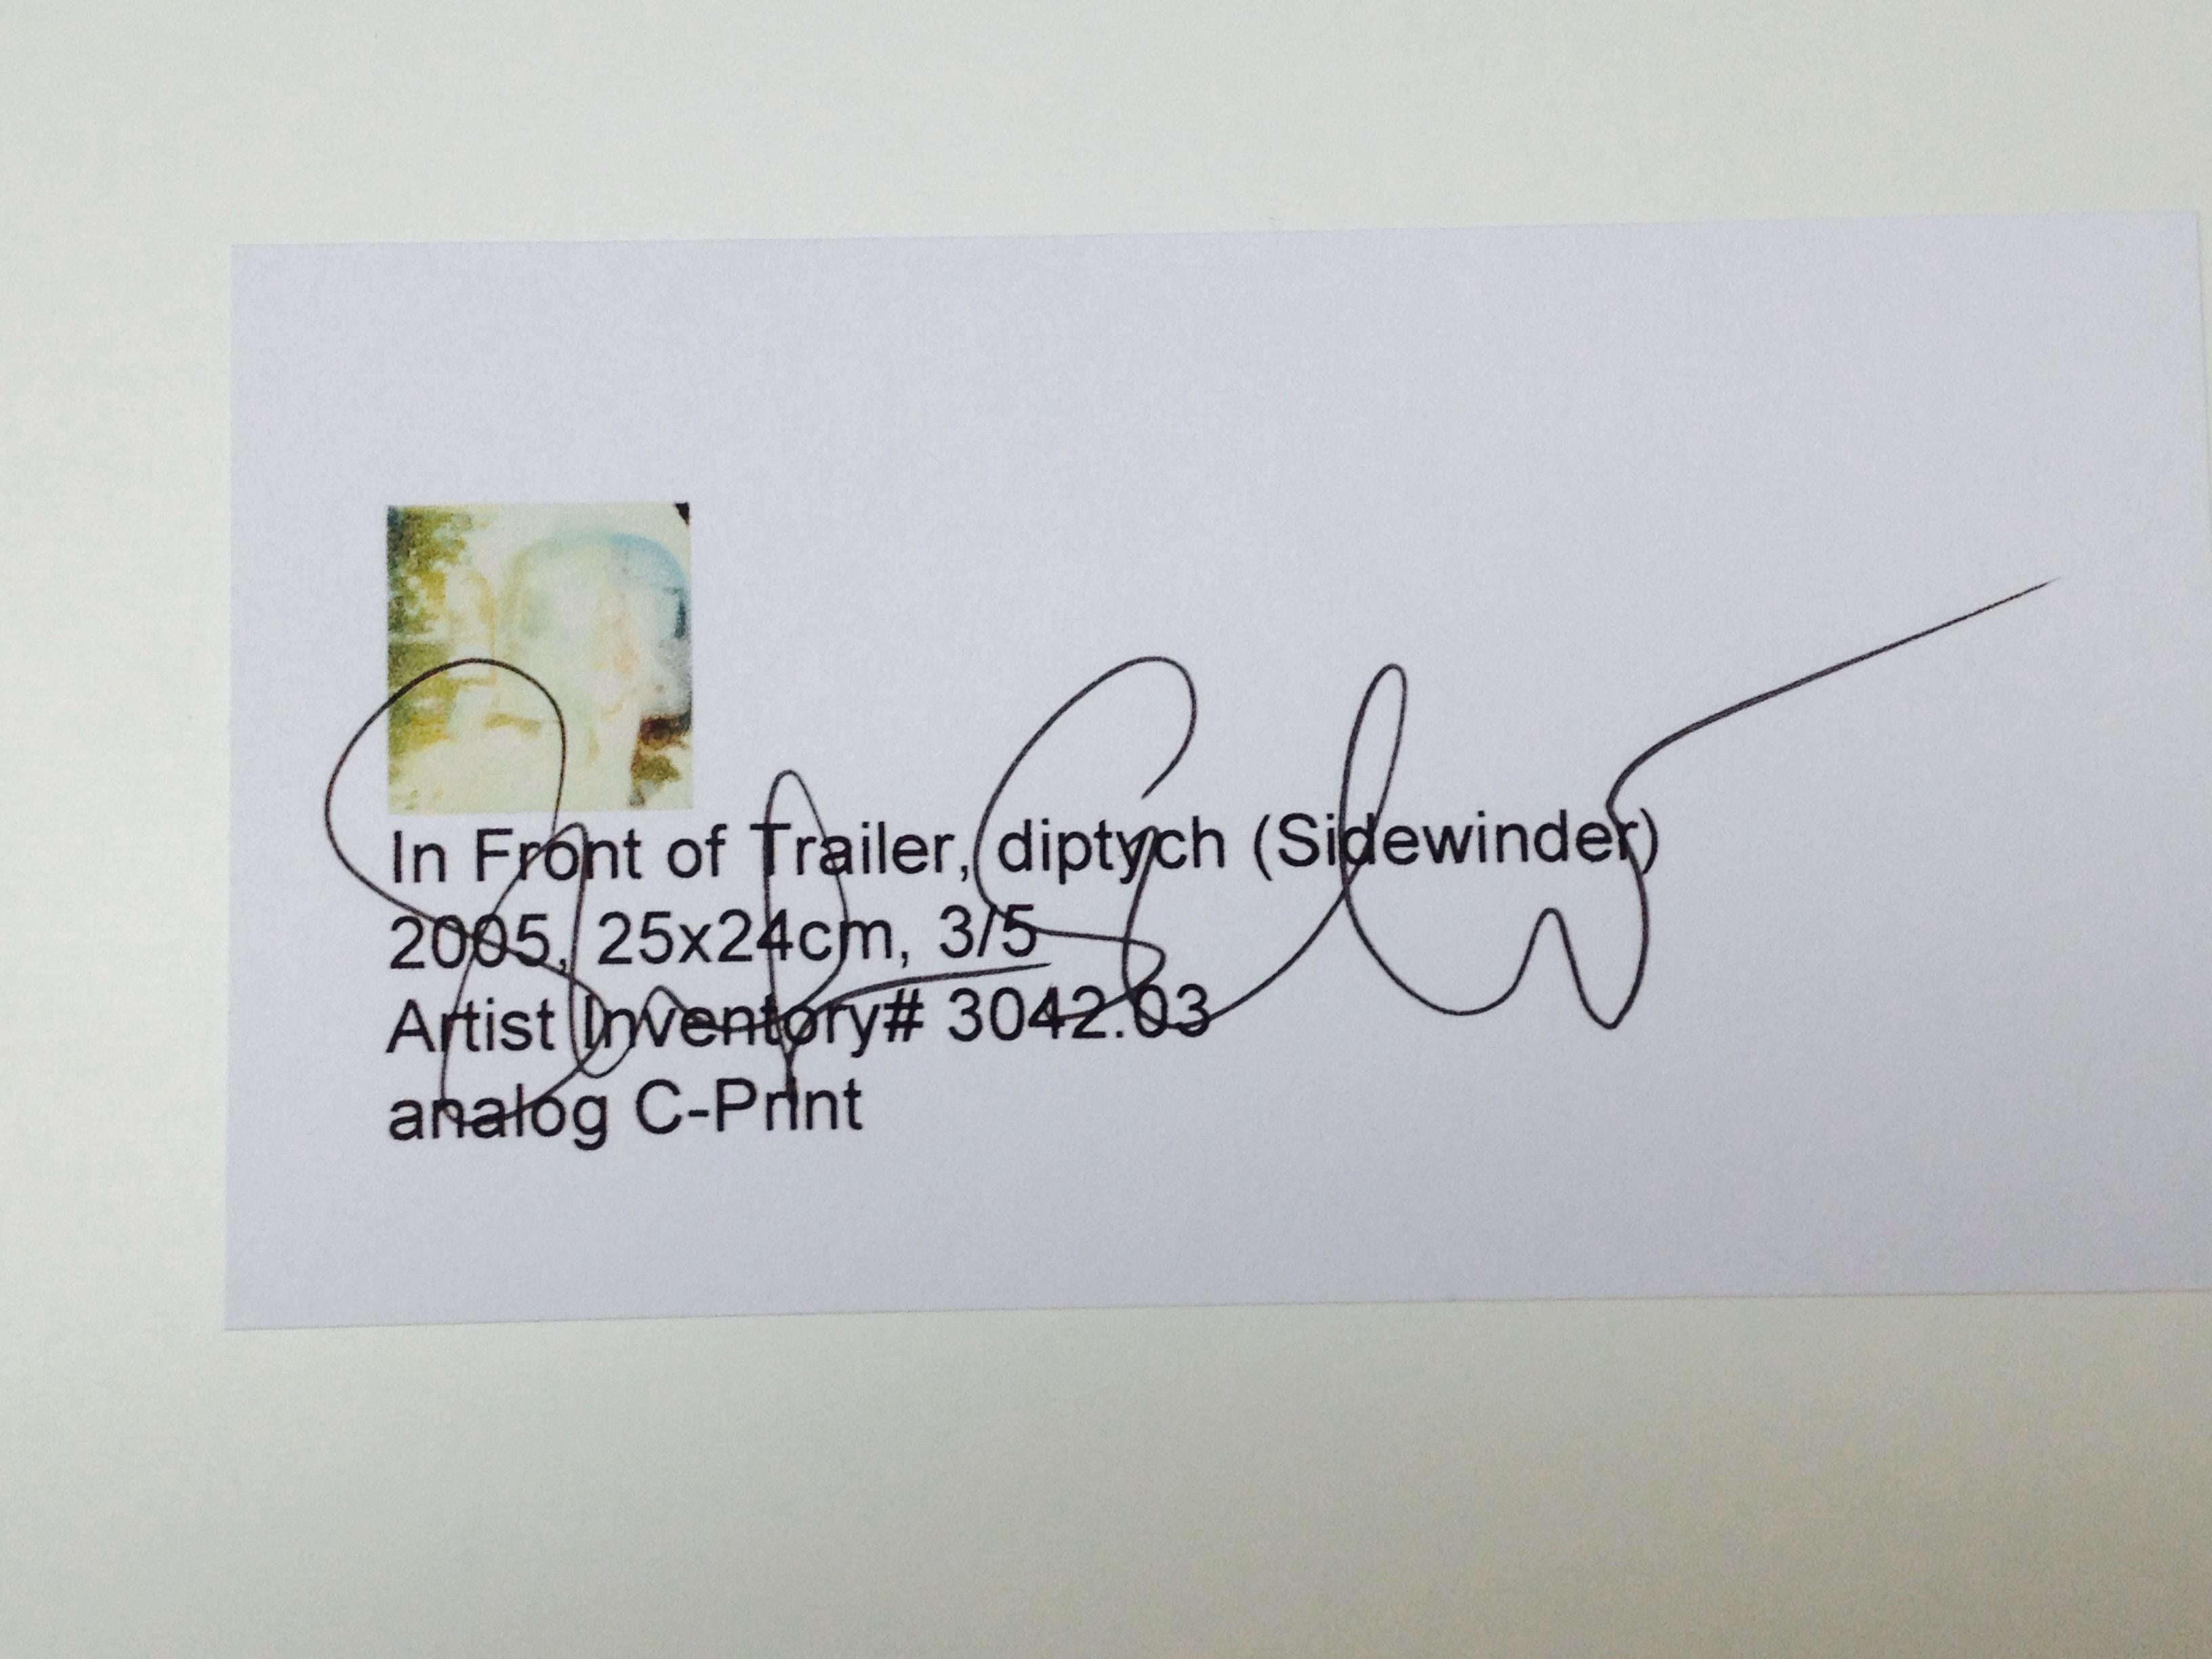 In Front of Trailer, diptych (Sidewinder)
2005, 25x24cm, 3/5
Artist Inventory# 3042.03
analog C-Print